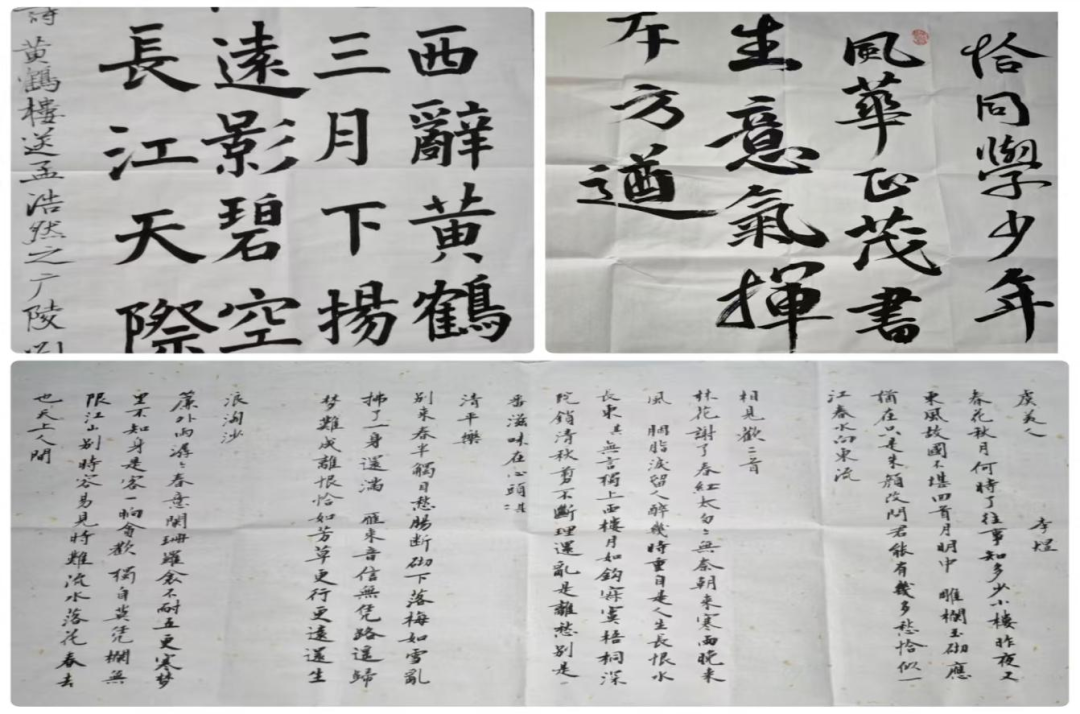 西辭黃鶴
三月下揚
遠影碧空
長江天際
詩黃鶴樓送孟浩然之广陵
恰同學少年
風華正茂書
生意氣揮
斥方遒
虞美人 李煜
春花秋月何時了往事知多少小樓昨夜又
東風故國不堪回首月明中 雕欄玉砌應
猶在只是朱顏改問君能有幾多愁恰似一
江春水向東流
相見歡二首
林花謝了春紅太匆々無奈朝來寒雨晚來
風 胭脂淚留人醉幾時重自是人生長恨水
長東 其一無言獨上西樓月如鈎寂寞梧桐深
院鎖清秋剪不斷理還亂是離愁別是
番滋味在心頭 其二
清平樂
別來春半觸目愁腸斷砌下落梅如雪亂
拂了一身還滿 雁來音信無凭路遥歸
夢難成離恨恰如芳草更行更遠還生
浪淘沙
簾外雨潺々春意闌珊羅衾不耐五更寒夢
里不知身是客一晌貪歡 獨自莫凭欄無
限江山別時容易見時難流水落花春去
也天上人間